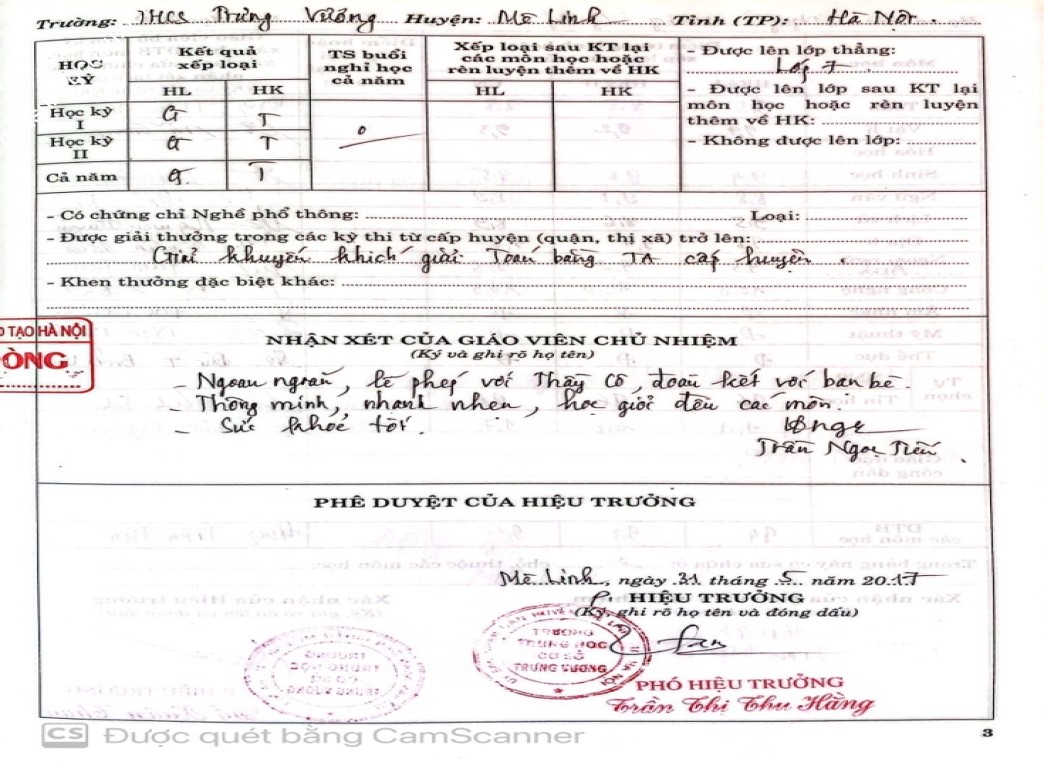 Trường: THCS Trưng Vương Huyện: Mê Linh Tỉnh (TP): Hà Nội.
HỌC KỲ
Kết quả xếp loại
TS buổi nghỉ học cả năm
Xếp loại sau KT lại các môn học hoặc rèn luyện thêm về HK
HL HK HL HK
Học kỳ I G T
Học kỳ II G T
Cả năm G T
0
- Được lên lớp thẳng:
Lớp 7
- Được lên lớp sau KT lại
môn học hoặc rèn luyện
thêm về HK:
- Không được lên lớp:
- Có chứng chỉ Nghề phổ thông: Loại:
- Được giải thưởng trong các kỳ thi từ cấp huyện (quận, thị xã) trở lên:
Giải khuyến khích giải Toán bằng TA cấp huyện.
- Khen thưởng đặc biệt khác:
TẠO HÀ NỘI
ÒNG
NHẬN XÉT CỦA GIÁO VIÊN CHỦ NHIỆM
(Ký và ghi rõ họ tên)
- Ngoan ngoãn, lễ phép với Thầy Cô, đoàn kết với bạn bè.
- Thông minh, nhanh nhẹn, học giỏi đều các môn.
- Sức khỏe tốt.
Trần Ngọc Tiến.
PHÊ DUYỆT CỦA HIỆU TRƯỞNG
Mê Linh, ngày 31 tháng 5 năm 2017
HIỆU TRƯỞNG
(Ký, ghi rõ họ tên và đóng dấu)
TRƯỜNG
TRUNG HỌC
CƠ SỞ
TRƯNG VƯƠNG
PHÓ HIỆU TRƯỞNG
Trần Thị Thu Hằng
3
CS Được quét bằng CamScanner